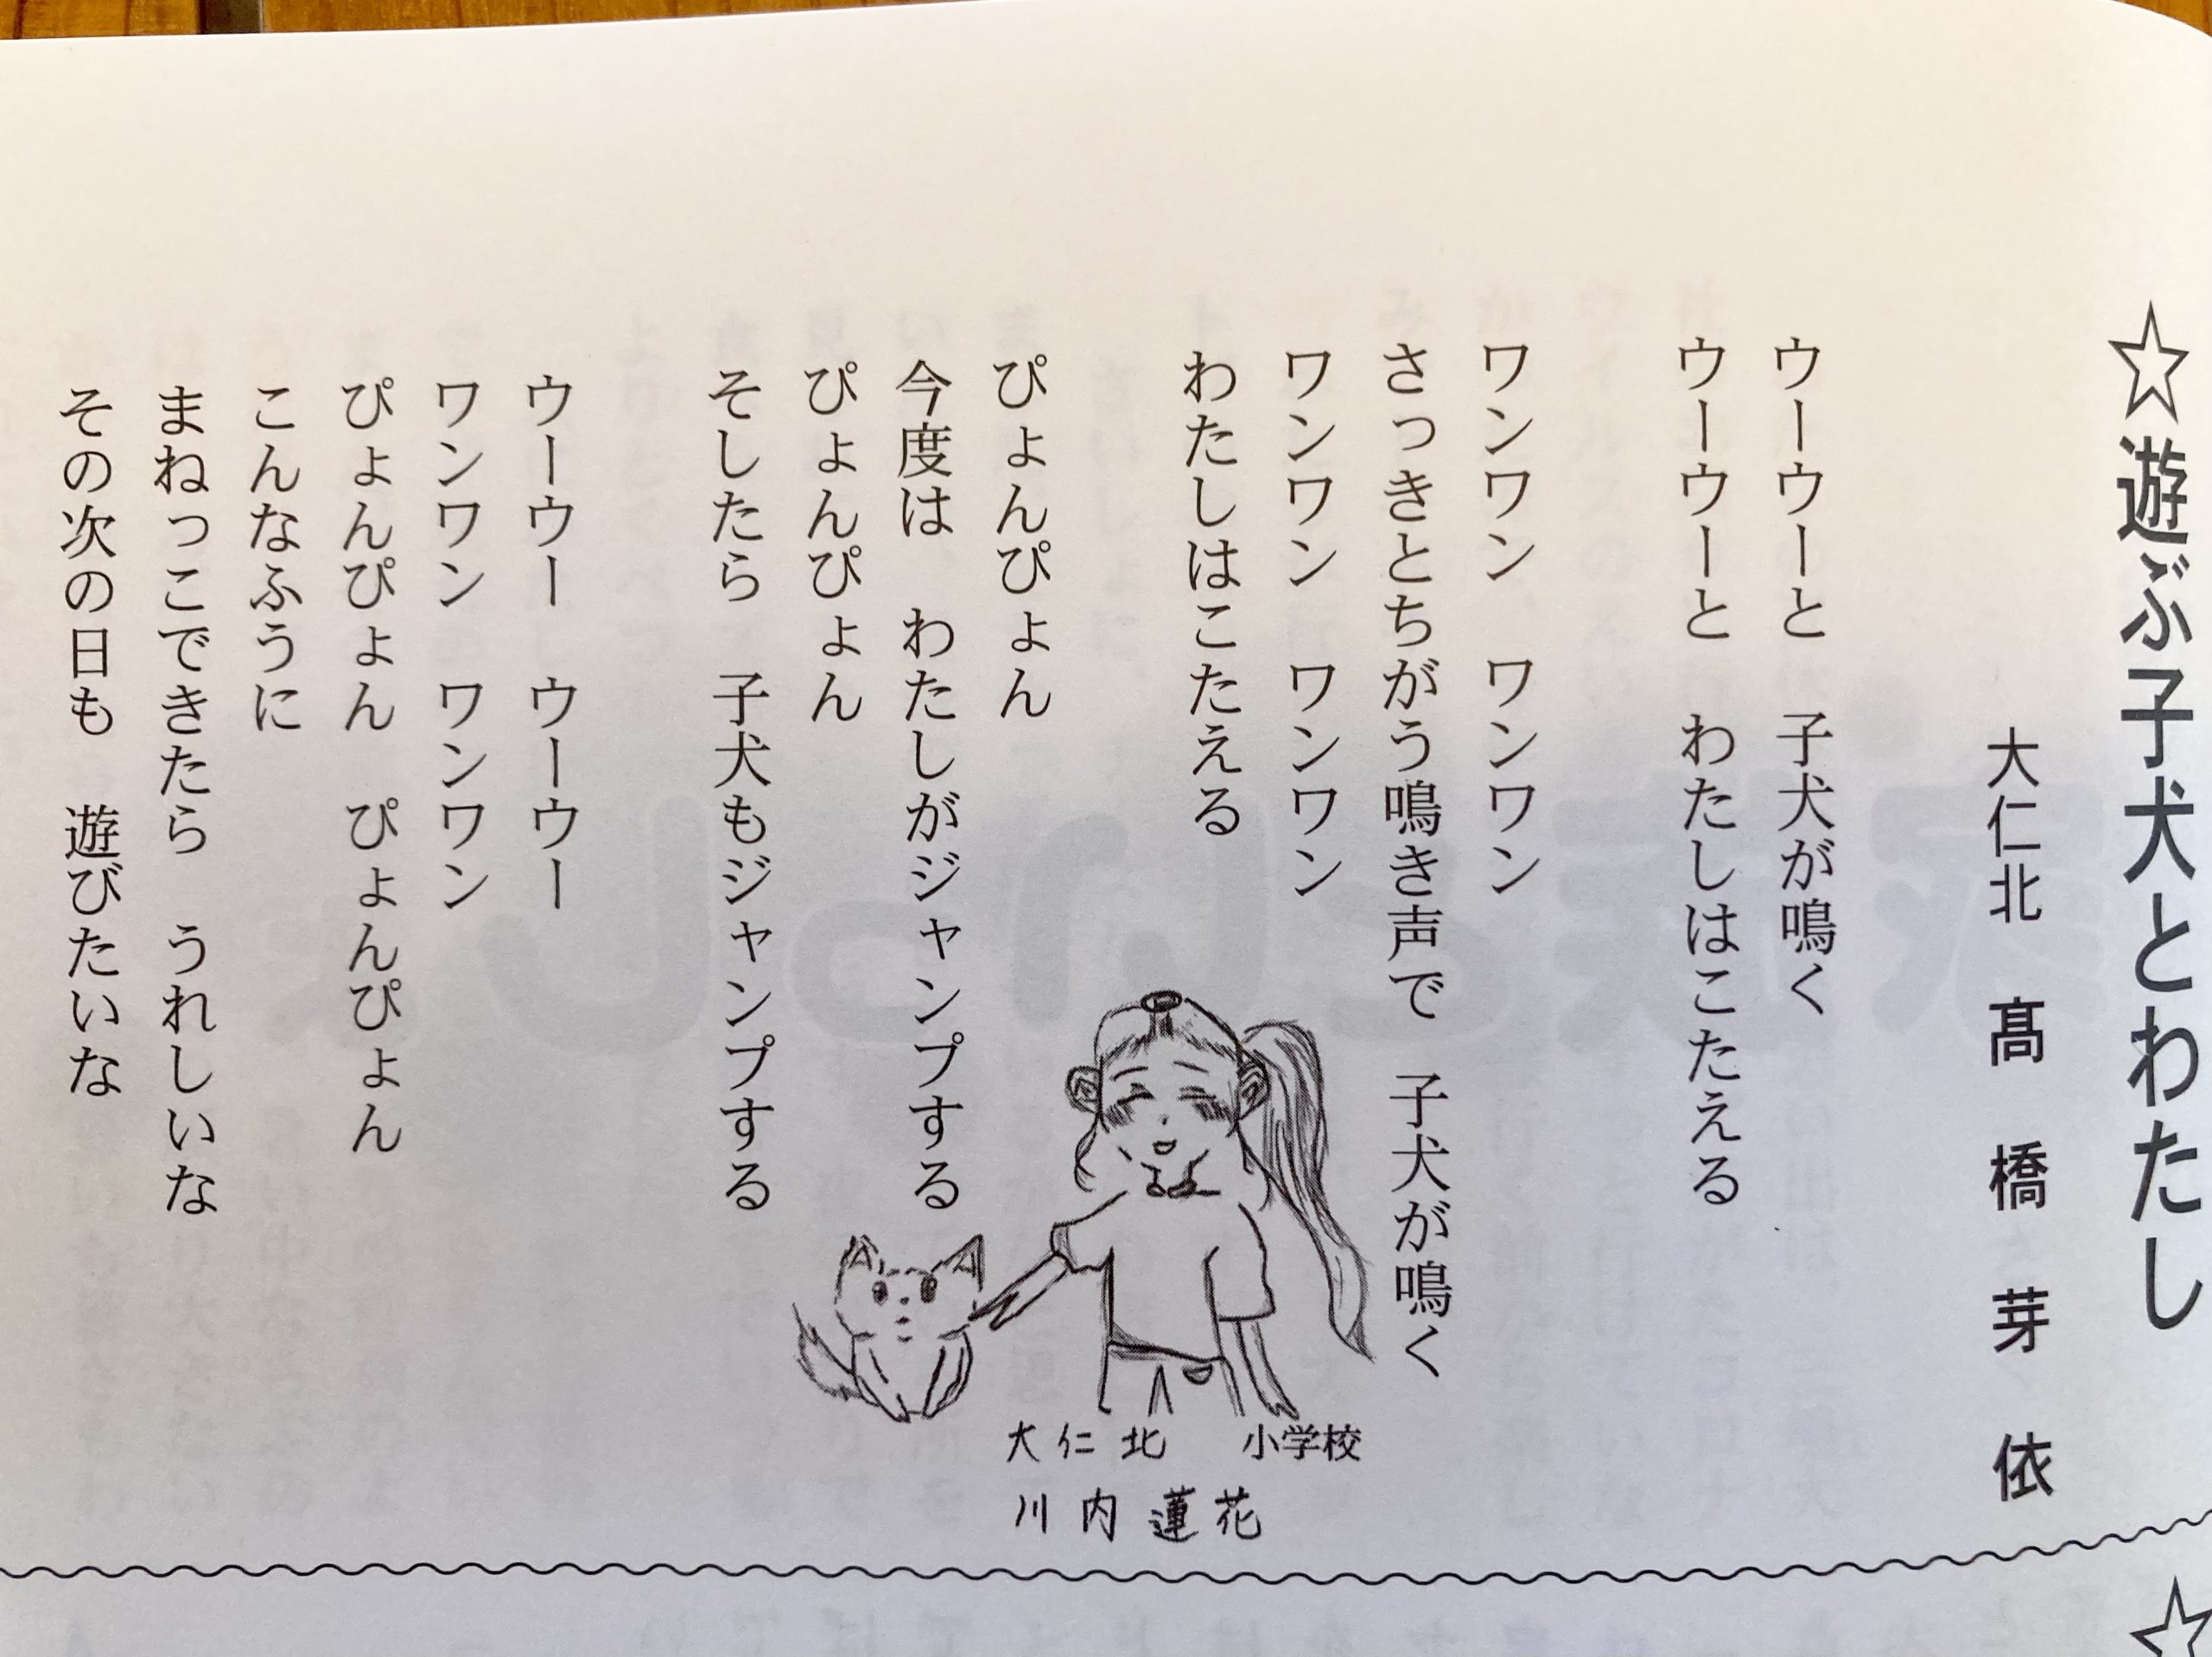 ☆遊ぶ子犬とわたし
大仁北　髙橋芽依
ウーウーと　子犬が鳴く
ウーウーと　わたしはこたえる
ワンワン　ワンワン
さっきとちがう鳴き声で　子犬が鳴く
ワンワン　ワンワン
わたしはこたえる
ぴょんぴょん
今度は　わたしがジャンプする
ぴょんぴょん
そしたら　子犬もジャンプする
ウーウー　ウーウー
ワンワン　ワンワン
ぴょんぴょん　ぴょんぴょん
こんなふうに
まねっこできたら　うれしいな
その次の日も　遊びたいな
大仁北　小学校
川内蓮花
☆